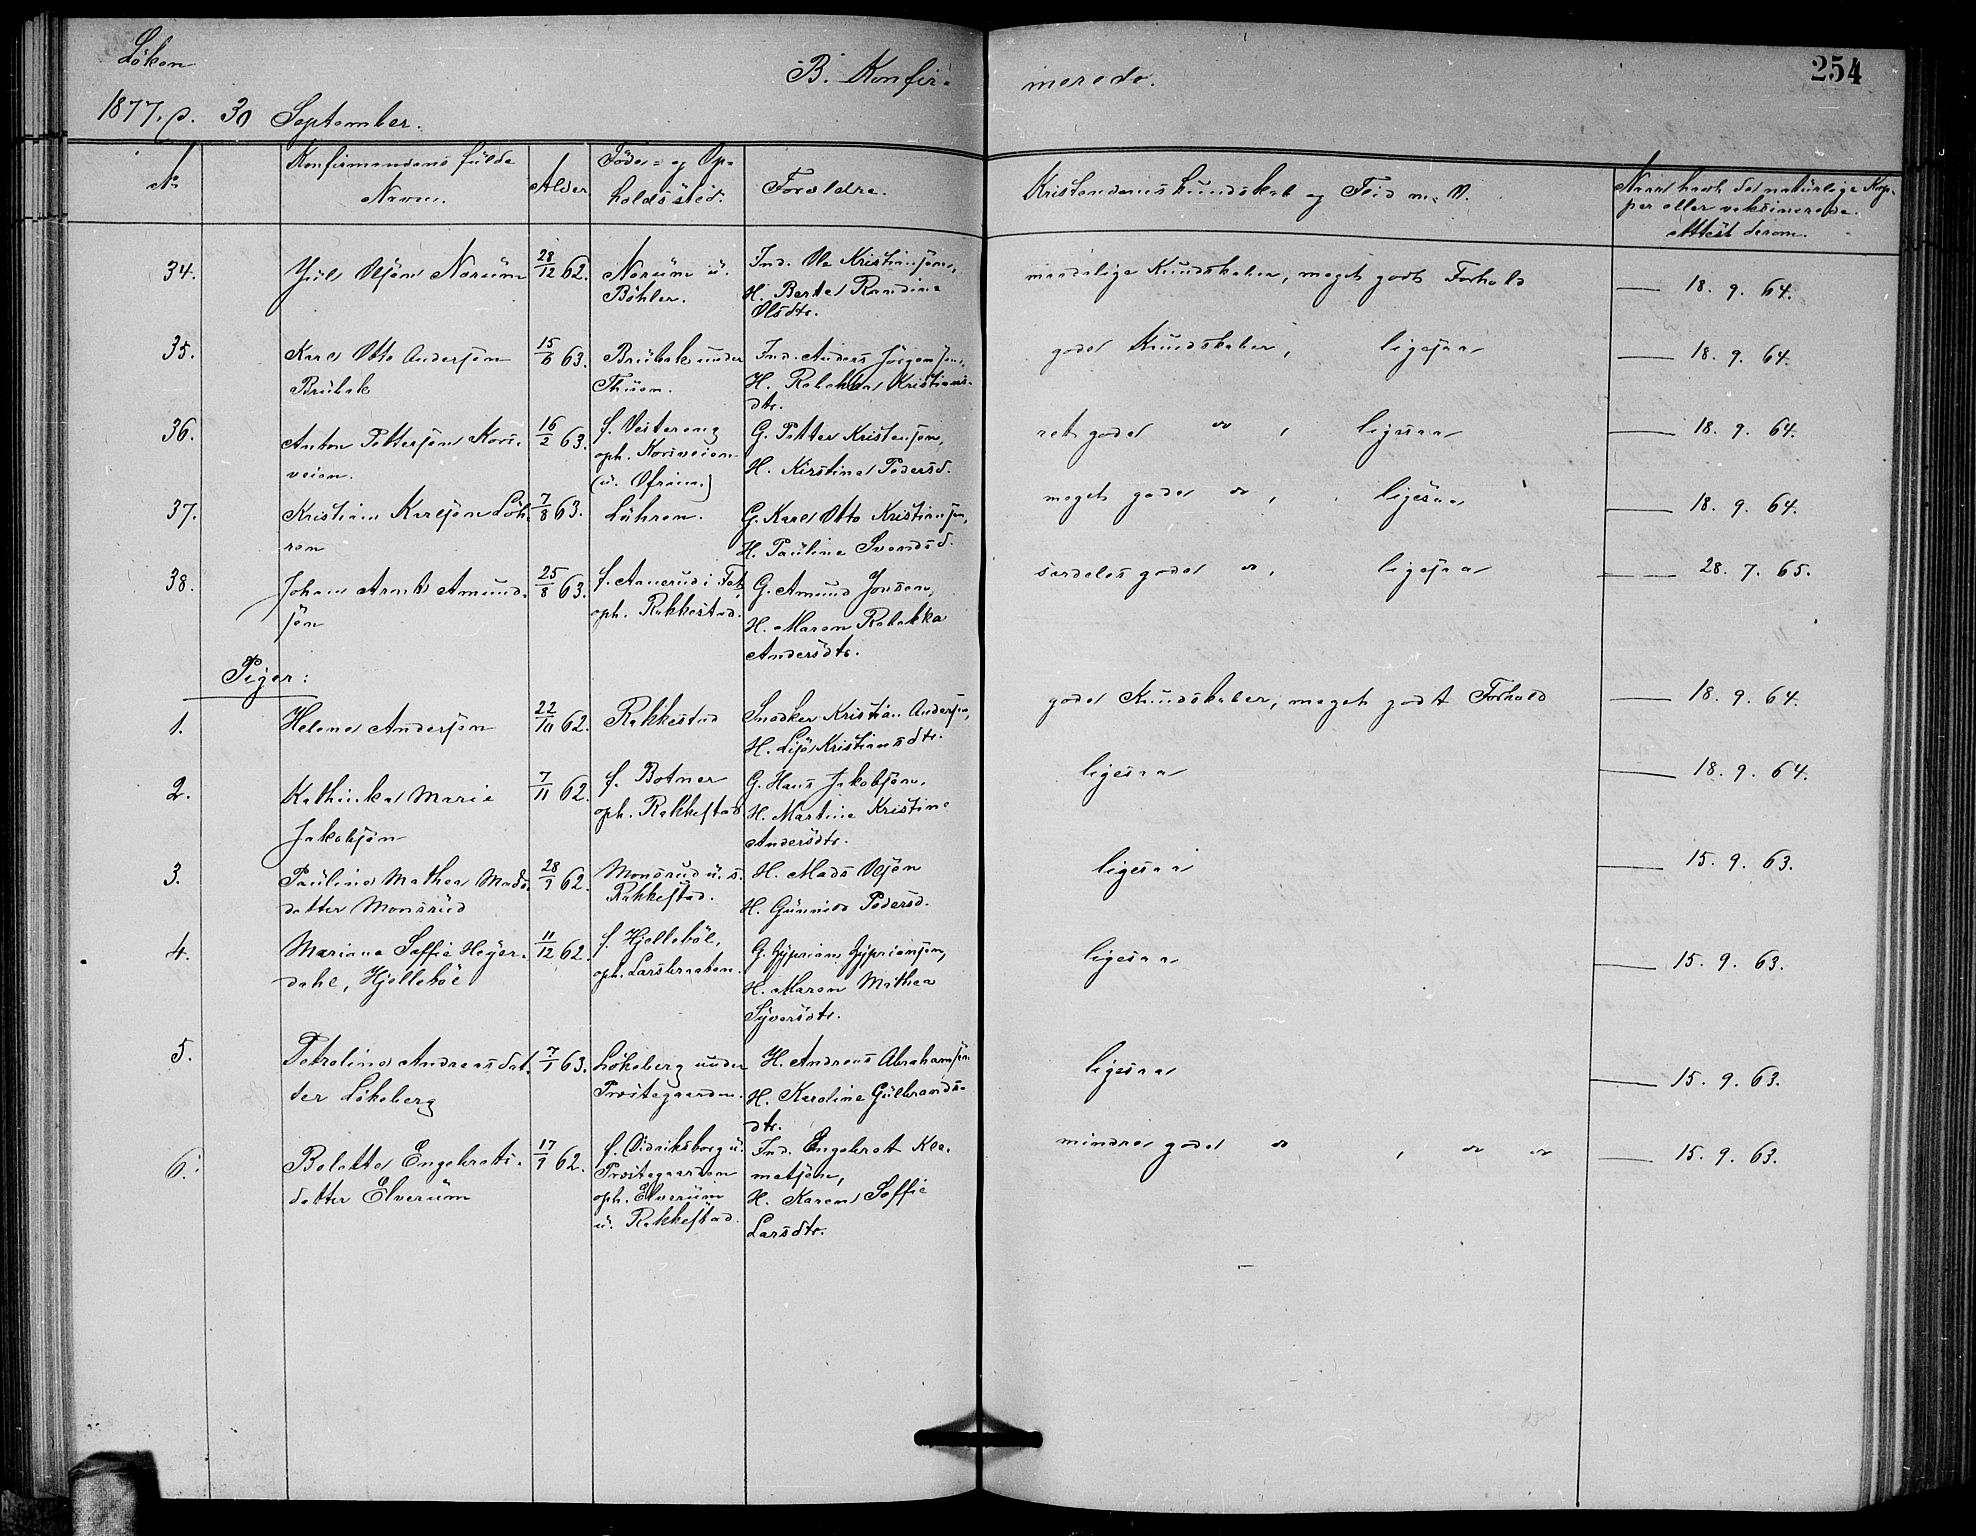 Löken
B. Konfir-
merede.
254
1877, d. 30 September.
No
Konfirmandens fulde
Navn.
Alder
Föde- og Op-
holdssted.
Forældre.
Kristendomskundskab og Flid m. V.
Naar havt de naturlige Kop-
per eller vaksinerede.
Attest derom.
34.
Juls Olsen Norum
28/12 62.
Norum u.
Böhler.
Ind. Ole Kristiansen,
H. Berte Randine
Olsdtr.
maadelige Kundskaber, meget godt Forhold
18. 9. 64.
35.
Karl Otto Andersen
Brubak
15/6 63.
Brubak under
Thuen.
Ind. Anders Jörgensen,
H. Rebekka Kristians-
dtr.
gode Kundskaber, ligesaa
18. 9. 64.
36.
Anton Pettersen Kors-
veien.
16/2 63.
f. Vestereng
oph. Korsveien
(u. Ofrim.)
G. Petter Kristensen,
H. Kirstine Pedersd.
ret gode do , ligesaa
18. 9. 64.
37.
Kristian Karlsen Löh-
ren
7/8 63.
Löhren.
G. Karl Otto Kristiansen,
H. Pauline Svendsd.
meget gode do , ligesaa
18. 9. 64.
38.
Johan Arnt Amund-
sen
25/8 63.
f. Aanerud i Fet,
oph. Rakkestad.
G. Amund Jonsen,
H. Maren Rebekka
Andersdtr.
særdeles gode do , ligesaa
28. 7. 65.
Piger:
1.
Helene Andersen
22/10 62.
Rakkestad
Snedker Kristian Andersen,
H. Lise Kristiansdtr.
gode Kundskaber, meget godt Forhold
18. 9. 64.
2.
Kathinka Marie
Jakobsen
7/11 62.
f. Botner
oph. Rakkestad
G. Hans Jakobsen,
H. Martine Kristine
Andersdtr.
ligesaa
18. 9. 64.
3.
Pauline Mathea Mads-
datter Monsrud
28/9 62.
Monsrud u. s.
Rakkestad.
H. Mads Olsen
H. Gunnild Pedersd.
ligesaa
15. 9. 63.
4.
Mariane Soffie Heyer-
dahl, Hjelleböl
11/12 62.
f. Hjelleböl,
oph. Larsbraaten.
G. Zyprian Zypriansen,
H. Maren Mathea
Syversdtr.
ligesaa
15. 9. 63.
5.
Petroline Andreasdat-
ter Lökeberg
7/1 63.
Lökeberg under
Præstegaarden.
H. Andreas Abrahamsen
H. Karoline Gulbrands-
dtr.
ligesaa
15. 9. 63.
6.
Bolette Engebrets-
datter Elverum
17/9 62.
f. Didriksborg u.
Præstegaarden
oph. Elverum
u. Rakkestad.
Ind. Engebret Kle-
metsen,
H. Karen Soffie
Larsdtr.
mindre gode do , do do
15. 9. 63.